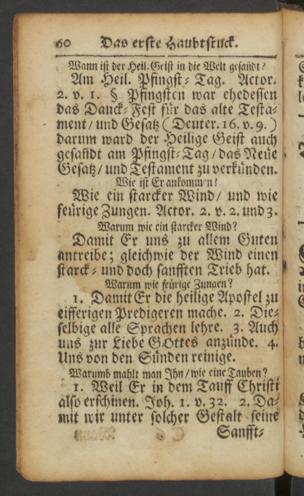 60 Das erste Haubtstuck.
Wann ist der Heil. Geist in die Welt gesandt?
Am Heil. Pfingst-Tag. Actor.
2. v. 1. § Pfingsten war ehedessen
das Danck-Fest für das alte Testa-
ment/ und Gesatz ( Deuter. 16. v. 9. )
darum ward der Heilige Geist auch
gesandt am Pfingst-Tag/ das Neüe
Gesatz/ und Testament zu verkünden.
Wie ist Er ankommen?
Wie ein starcker Wind/ und wie
feürige Zungen. Actor. 2. v. 2. und 3.
Warum wie ein starcker Wind?
Damit Er uns zu allem Guten
antreibe; gleichwie der Wind einen
starck- und doch sanfften Trieb hat.
Warum wie feürige Zungen?
1. Damit Er die heilige Apostel zu
eifferigen Predigeren mache. 2. Die-
selbige alle Sprachen lehre. 3. Auch
uns zur Liebe GOttes anzünde. 4.
Uns von den Sünden reinige.
Warumb mahlt man Ihn/ wie eine Tauben?
1. Weil Er in dem Tauff Christi
also erschinen. Joh. 1. v. 32. 2. Da-
mit wir unter solcher Gestalt seine
Sanfft-